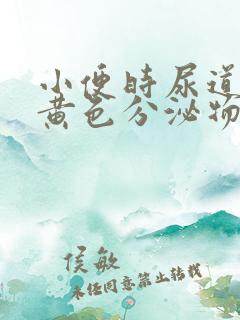 小便时尿道
黄色分泌物
侯敏
未经同意禁止转载